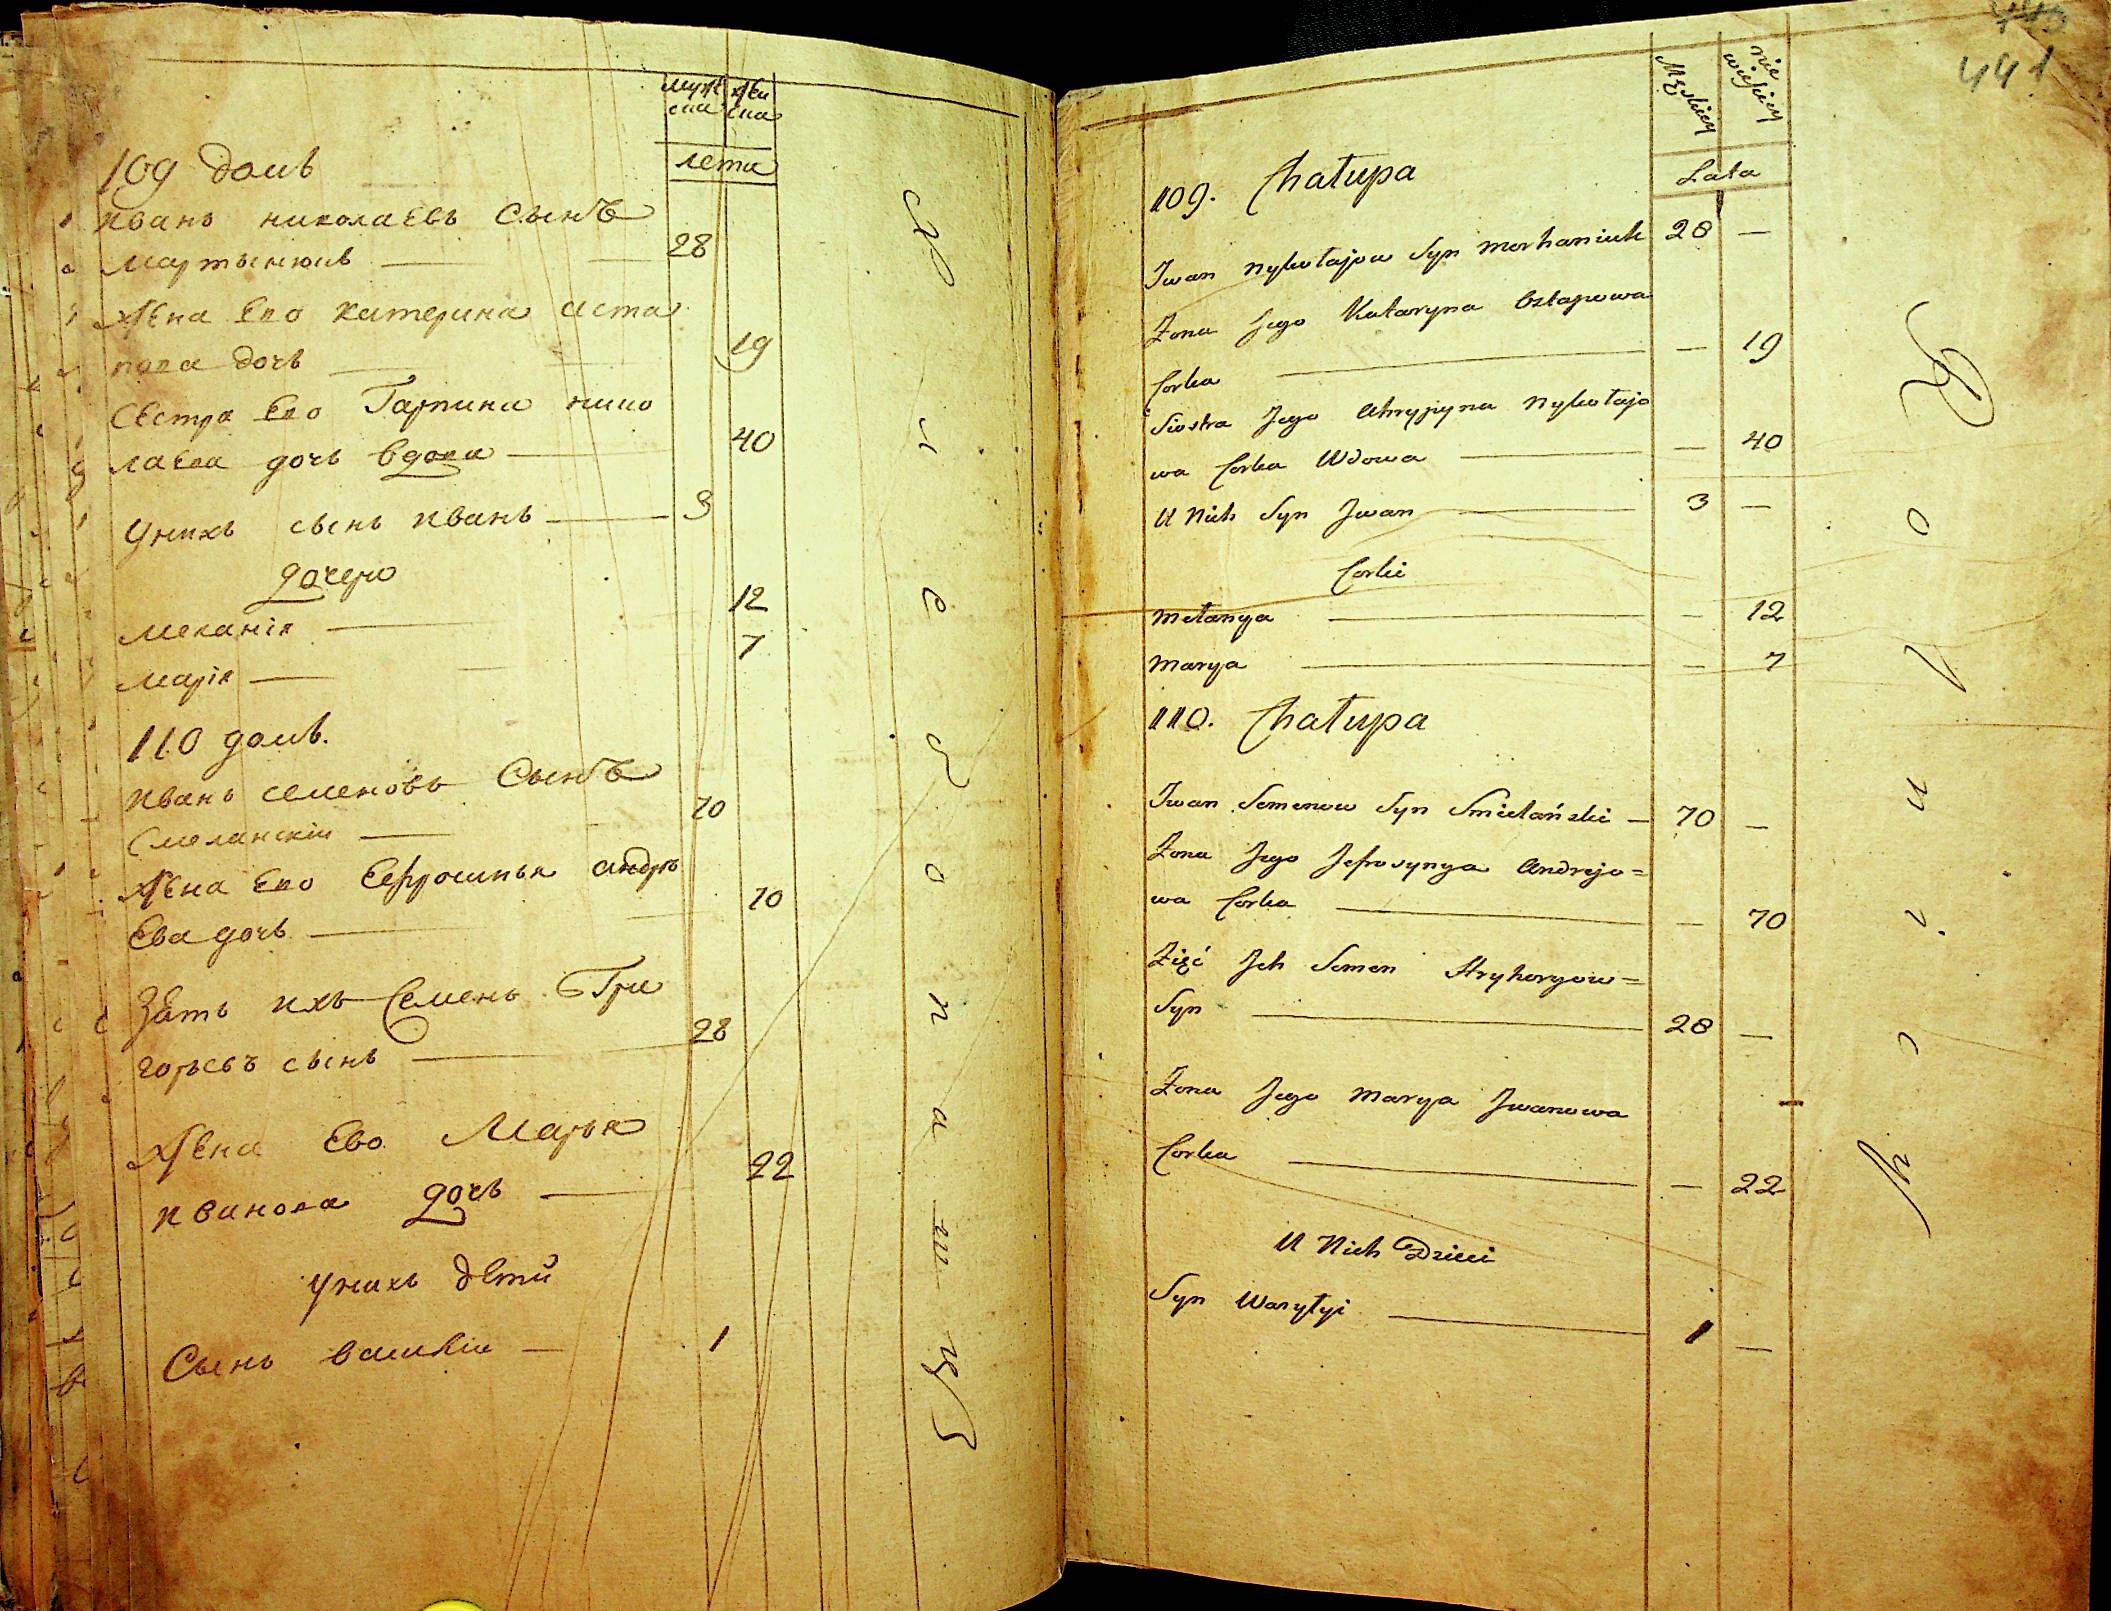 муже жен
ска ска
лета
109 домъ
иванъ николаевъ Сынъ
мартынюкъ 28
жена Ево катерина аста
пова дочь 19
Сестра Ево Гарпина нико
лаева дочь вдова 40
унихъ сынъ иванъ 3
дочери
мелания 12
марія 7
110 домъ.
иванъ семеновъ Сынъ
Смеланскіи 70
жена Ево Ефросинья андре
Ева дочь 70
Зять ихъ Семенъ Гри
горьевъ сынъ 28
жена Ево Марья
иванова дочь 22
унихъ дети
Сынъ василіи 1
441
Męskiey nie wieskiey
Lata
109. Chałupa
Iwan Nykołajow Syn Marhaniuk 28 —
Żona Jego Katarzyna Ostapowa
Corka — 19
Siostra Jego Ahrypyna Nykołajo
wa Corka Wdowa — 40
U Nich Syn Jwan 3 —
Corki
Mełanya — 12
Marya — 7
110. Chałupa
Jwan Semenow Syn Smiełański — 70 —
Żona Jego Jefrosynya Andrejo=
wa Corka — 70
Zięć Jch Semen Hryhoryow=
Syn 28 —
Żona Jego Marya Jwanowa
Corka — 22
U Nich Dzieci
Syn Wasyłyi 1 —